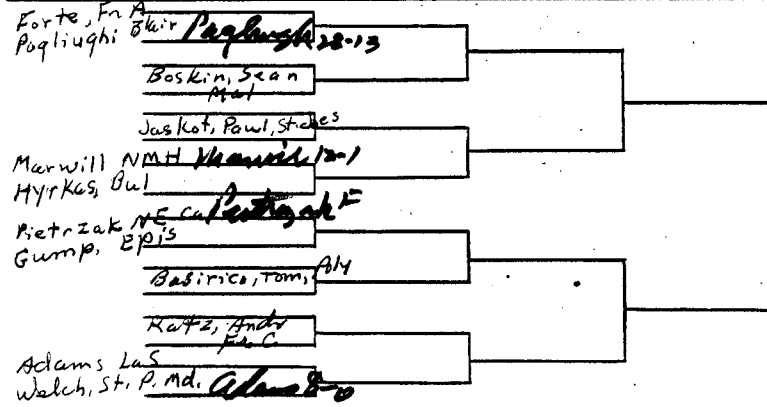 Forte, Fr A
Pagliughi Blair Pagliughi 28-13
Boskin, Sean
Mal
Jaskot, Paul, St. James
Marwill NMH Marwill 12-1
Hyrkas, Bul
Pietrzak NE Ca Pietrzak F
Gump, Epis
Basirico, Tom, Poly
Katz, Andr
Fr. C.
Adams LaS
Welch, St. P. Md. Adams 8-0